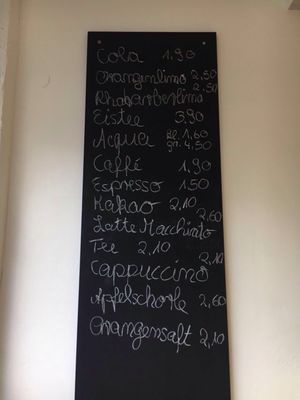 Cola 1,90
Orangenlimo 2,50
Rhabarberlimo 2,50
Eistee 3,90
Acqua kl. 1,60
gr. 4,50
Caffé 1,90
Espresso 1,50
Kakao 2,10
Latte Macchiato 2,60
Tee 2,10
Cappuccino 2,10
Apfelschorle 2,60
Orangensaft 2,10